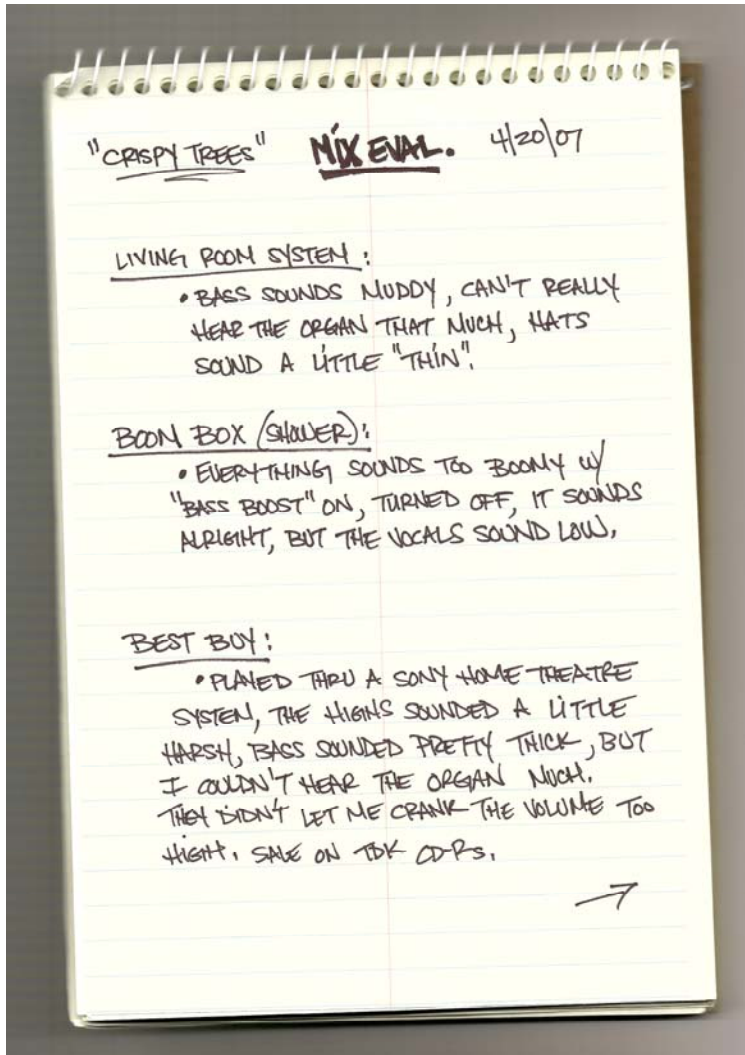 "CRISPY TREES" MIX EVAL. 4/20/07
LIVING ROOM SYSTEM:
• BASS SOUNDS MUDDY, CAN'T REALLY
HEAR THE ORGAN THAT MUCH, HATS
SOUND A LITTLE "THIN".
BOOM BOX (SHOWER):
• EVERYTHING SOUNDS TOO BOOMY W/
"BASS BOOST" ON, TURNED OFF, IT SOUNDS
ALRIGHT, BUT THE VOCALS SOUND LOW.
BEST BUY:
• PLAYED THRU A SONY HOME THEATRE
SYSTEM, THE HIGHS SOUNDED A LITTLE
HARSH, BASS SOUNDED PRETTY THICK, BUT
I COULDN'T HEAR THE ORGAN MUCH.
THEY DIDN'T LET ME CRANK THE VOLUME TOO
HIGH. SALE ON TDK CD-Rs.
→